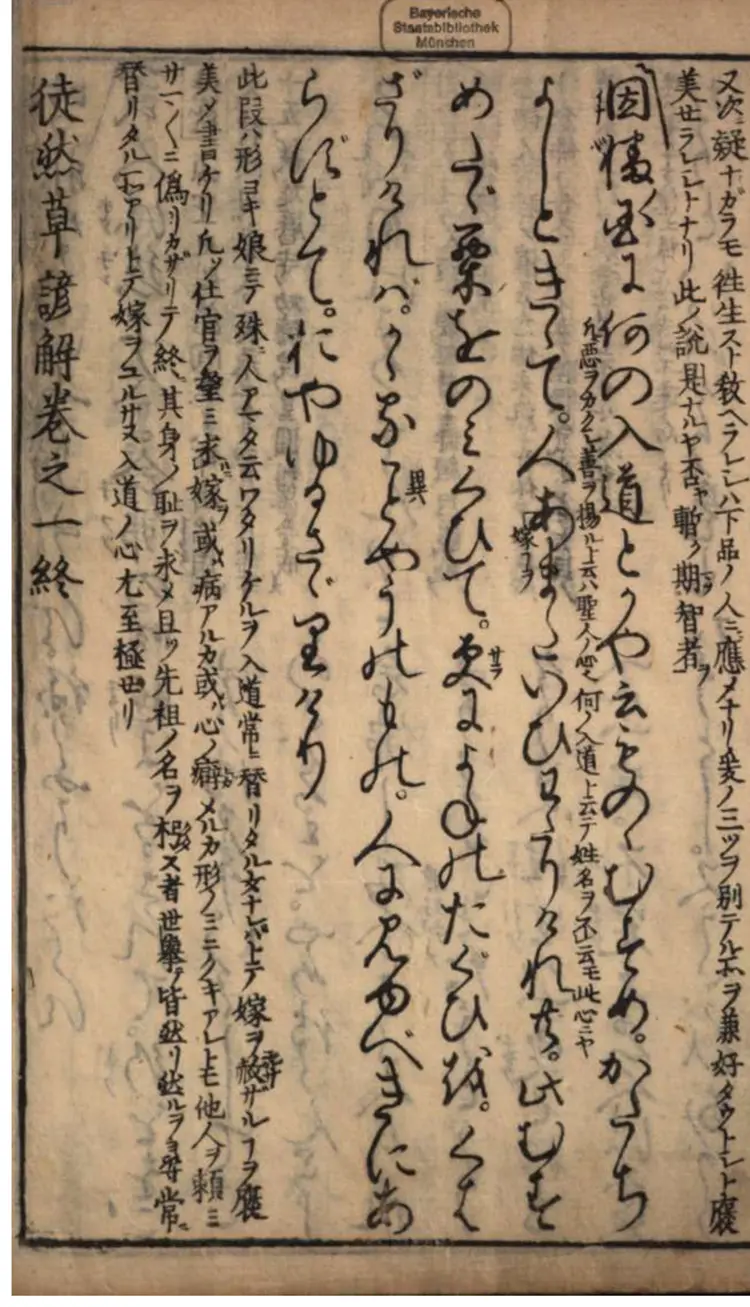 Bayerische
Staatsbibliothek
München
又次ニ疑ナガラモ徃生スト教ヘラレシハ下品ノ人ニ應メナリ爰ノ三ツヲ別テル所ヲ兼好タウトシト褒
美セラレシトナリ此ノ説是ナルヤ否ヤ暫ク期智者ヲ
因幡国に何の入道とかや云ものゝむすめ。かたち
凡悪ヲカクシ善ヲ揚ルト云ハ聖人ノ心也何ノ入道ト云テ姓名ヲ不云モ此心ニヤ
よしときゝて。人あまたいひわたりけれ共。此むす
嫁ヿヲ
めたゞ栗をのみくひて。更によねのたぐひを。くは
サラ
ざりければ。かゝることやうのもの。人に見ゆべきにあ
異
らずとて。おやゆるさゞりけり
此段ハ形ヨキ娘ニテ殊ニ人アマタ云ワタリケルヲ入道常ニ替リタル女ナレバトテ嫁ヲ赦ザルヿヲ褒
美メ書ケリ凡ソ仕官ヲ望ミ求嫁ヲ或ハ病アルカ或ハ心ノ癖メルカ形ノミニクキアレトモ他人ヲ頼ミ
サマ〱ニ偽リカザリテ終ニ其身ノ耻ヲ求メ且ツ先祖ノ名ヲ朽ス者世擧テ皆然リ然ルヲ尋常ニ
替リタル所アリトテ嫁ヲユルサヌ入道ノ心尤至極セリ
徒然草諺解巻之一終